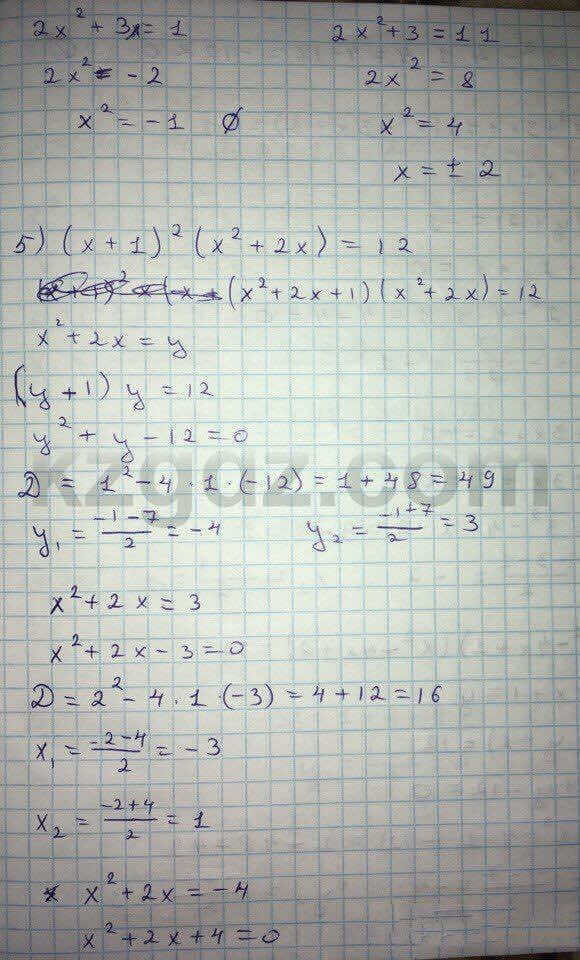 2x² + 3x = 1
2x² = -2
x² = -1 ∅
2x² + 3 = 11
2x² = 8
x² = 4
x = ± 2
5) (x + 1)² (x² + 2x) = 12
(x² + 2x + 1) (x² + 2x) = 12
x² + 2x = y
(y + 1) y = 12
y² + y - 12 = 0
D = 1² - 4 · 1 · (-12) = 1 + 48 = 49
y₁ = (-1 - 7)/2 = -4 y₂ = (-1 + 7)/2 = 3
x² + 2x = 3
x² + 2x - 3 = 0
D = 2² - 4 · 1 · (-3) = 4 + 12 = 16
x₁ = (-2 - 4)/2 = -3
x₂ = (-2 + 4)/2 = 1
x² + 2x = -4
x² + 2x + 4 = 0
kzgdz.com